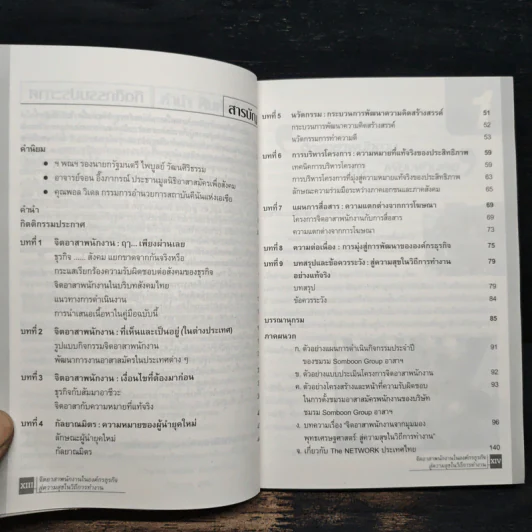 สารบัญ
คำนิยม
ฯ พณฯ รองนายกรัฐมนตรี ไพบูลย์ วัฒนศิริธรรม
อาจารย์จอน อึ๊งภากรณ์ ประธานมูลนิธิอาสาสมัครเพื่อสังคม
คุณพอล วิเดล กรรมการอำนวยการสถาบันคีนันแห่งเอเซีย
คำนำ
กิตติกรรมประกาศ
บทที่ 1 จิตอาสาพนักงาน : ฤๅ... เพียงผ่านเลย
ธุรกิจ ...... สังคม แยกขาดจากกันจริงหรือ
กระแสเรียกร้องความรับผิดชอบต่อสังคมของธุรกิจ
จิตอาสาพนักงานในบริบทสังคมไทย
แนวทางการดำเนินงาน
การนำเสนอเนื้อหาในคู่มือฉบับนี้
บทที่ 2 จิตอาสาพนักงาน : ที่เห็นและเป็นอยู่ (ในต่างประเทศ)
รูปแบบกิจกรรมจิตอาสาพนักงาน
พัฒนาการงานอาสาสมัครในประเทศต่าง ๆ
บทที่ 3 จิตอาสาพนักงาน : เงื่อนไขที่ต้องมาก่อน
ธุรกิจกับสัมมาอาชีวะ
จิตอาสากับความหมายที่แท้จริง
บทที่ 4 กัลยาณมิตร : ความหมายของผู้นำยุคใหม่
ลักษณะผู้นำยุคใหม่
กัลยาณมิตร
XIII จิตอาสาพนักงานในองค์กรธุรกิจ
สู่ความสุขในวิถีการทำงาน
บทที่ 5 นวัตกรรม : กระบวนการพัฒนาความคิดสร้างสรรค์ 51
กระบวนการพัฒนาความคิดสร้างสรรค์ 52
นวัตกรรมการทำความดี 53
บทที่ 6 การบริหารโครงการ : ความหมายที่แท้จริงของประสิทธิภาพ 59
เทคนิคการบริหารโครงการ 59
การบริหารโครงการที่มุ่งสู่ความหมายที่แท้จริงของประสิทธิภาพ 63
ลักษณะความร่วมมือระหว่างภาคเอกชนและภาคสังคม 65
บทที่ 7 แผนการสื่อสาร : ความแตกต่างจากการโฆษณา 69
โครงการจิตอาสาพนักงานกับการสื่อสาร 69
ความแตกต่างจากการโฆษณา 71
บทที่ 8 ความต่อเนื่อง : การมุ่งสู่การพัฒนาขององค์กรธุรกิจ 75
บทที่ 9 บทสรุปและข้อควรระวัง : สู่ความสุขในวิถีการทำงาน 79
อย่างแท้จริง
บทสรุป 79
ข้อควรระวัง 84
บรรณานุกรม 85
ภาคผนวก
ก. ตัวอย่างแผนการดำเนินกิจกรรมประจำปี 91
ของชมรม Somboon Group อาสาฯ
ข. ตัวอย่างแบบประเมินโครงการจิตอาสาพนักงาน 92
ค. ตัวอย่างโครงสร้างและหน้าที่ความรับผิดชอบ 93
ในการตั้งชมรมอาสาสมัครพนักงานของบริษัท
ชมรม Somboon Group อาสาฯ
ง. บทความเรื่อง "จิตอาสาพนักงานจากมุมมอง 96
พุทธเศรษฐศาสตร์ สู่ความสุขในวิถีการทำงาน"
จ. เกี่ยวกับ The NETWORK ประเทศไทย 140
จิตอาสาพนักงานในองค์กรธุรกิจ XIV
สู่ความสุขในวิถีการทำงาน